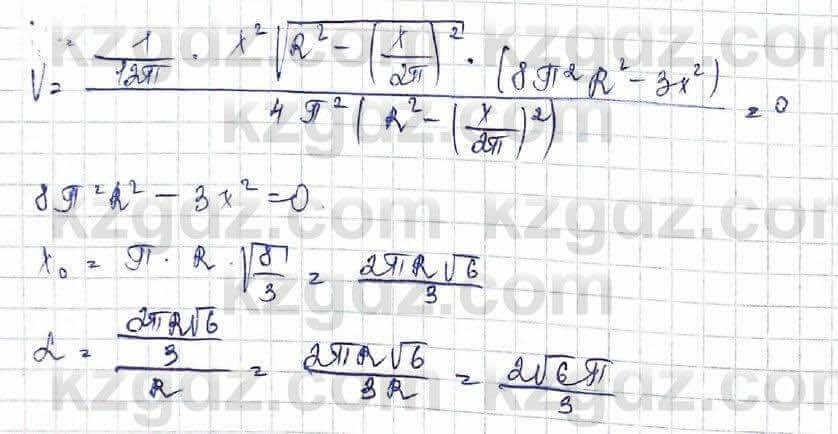 V̇ = (1/(12π) · x² √(R² − (x/2π)²) · (8π²R² − 3x²)) / (4π² (R² − (x/2π)²)) = 0
8π²R² − 3x² = 0.
x₀ = π · R · √(8/3) = 2πR√6 / 3
α = (2πR√6 / 3) / R = 2πR√6 / 3R = 2√6π / 3
kzgdz.com kzgdz.com
kzgdz.com
kzgdz.com kzgdz.com
kzgdz.com
kzgdz.com kzgdz.com